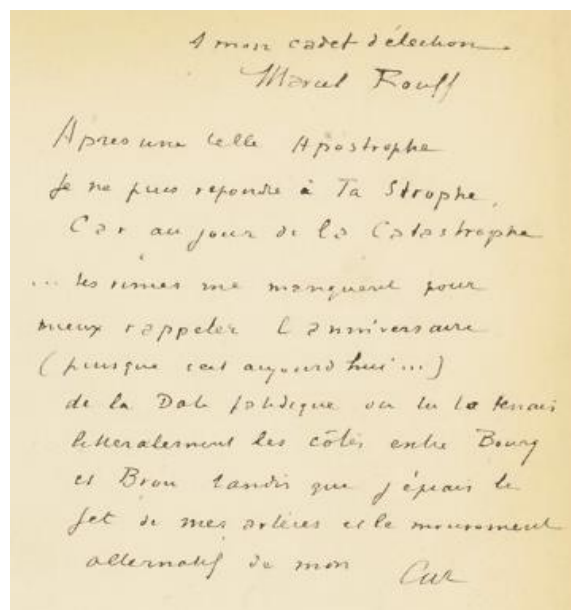 A mon cadet d'élection
Marcel Rouff
Apres une telle Apostrophe
Je ne puis répondre à Ta Strophe,
Car au jour de la Catastrophe
... les rimes me manquent pour
mieux rappeler l'anniversaire
(puisque c'est aujourd'hui...)
de la Date fatidique ou tu te tenais
litteralement les côtes entre Bourg
et Brou tandis que j'épiais le
jet de mes artères et le mouvement
alternatif de mon
Cur